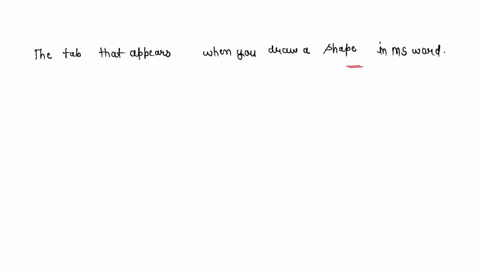 The tab that appears when you draw a shape in ms word.